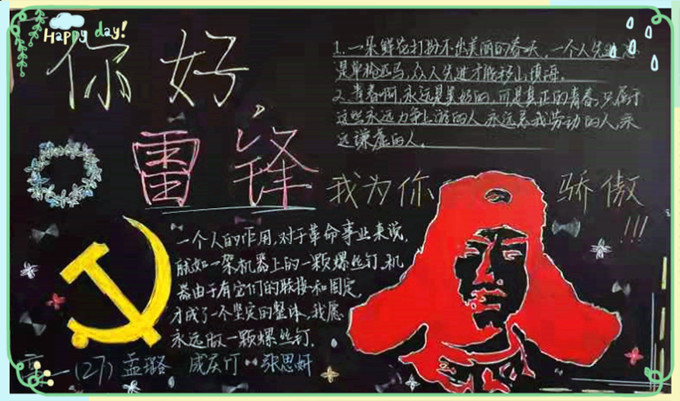 Happy day!
你好,
雷锋
我为你 骄傲!!!
1.一朵鲜花打扮不出美丽的春天,一个人先进总
是单枪匹马,众人先进才能移山填海。
2.青春啊,永远是美好的,可是真正的青春,只属于
这些永远力争上游的人,永远忘我劳动的人,永
远谦虚的人。
一个人的作用,对于革命事业来说,
就如一架机器上的一颗螺丝钉.机
器由于有它们的联接和固定,
才成了一个坚实的整体,我愿
永远做一颗螺丝钉.
高一(27) 孟璐 张思妍